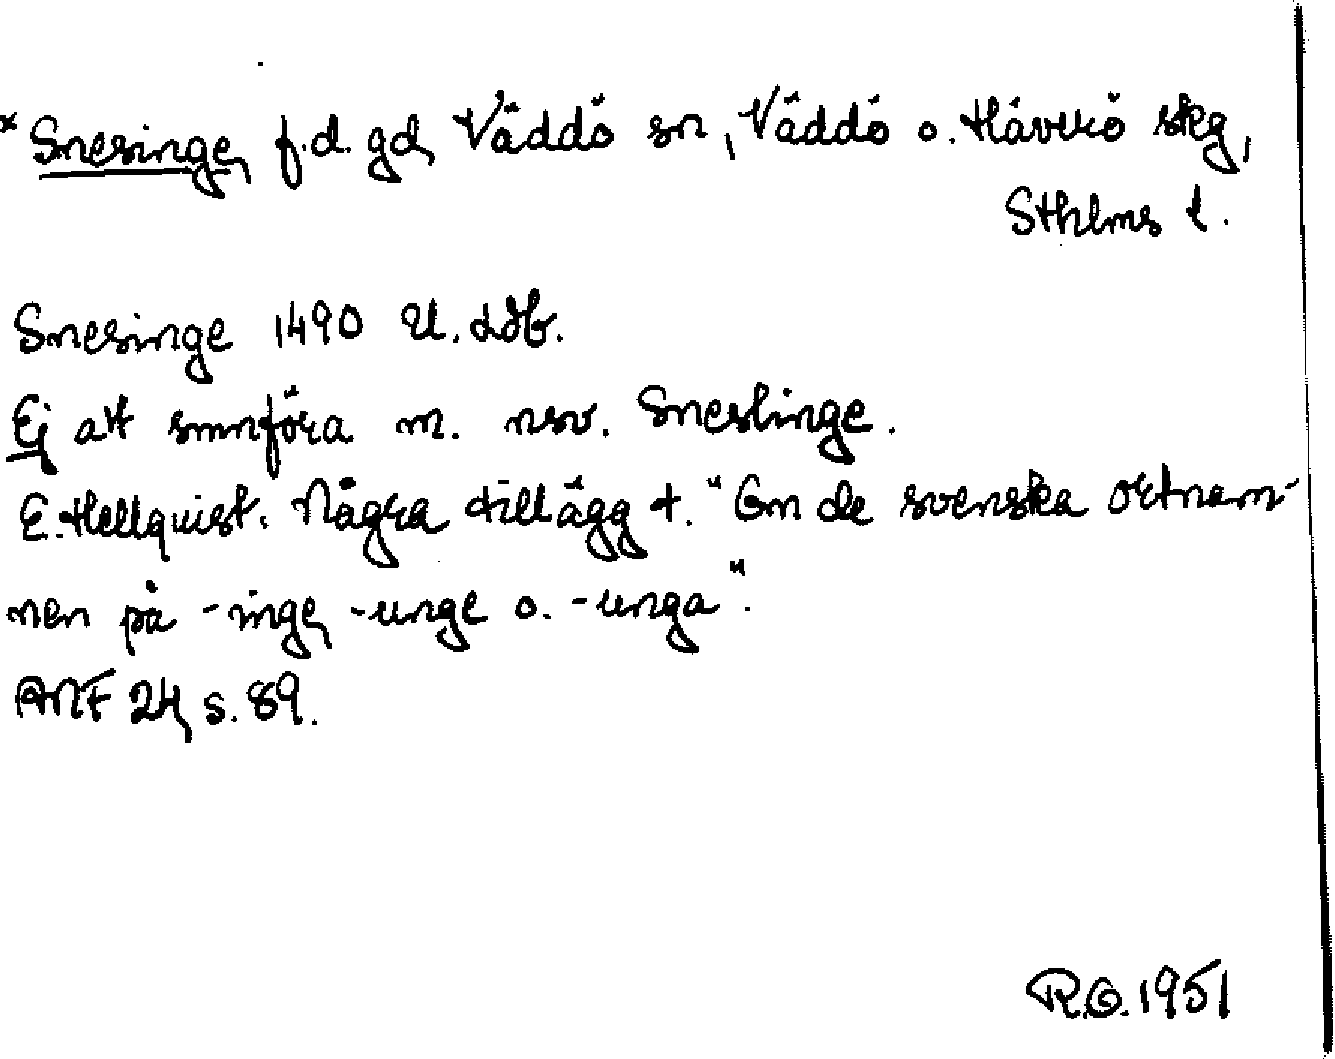 *Snesinge, f.d. gd, Väddö sn, Väddö o. Häverö skg,
Sthlms l.
Snesinge 1490 U. Ldb.
Ej att smnföra m. nsv. Sneslinge.
E. Hellquist. Några tillägg t. "Om de svenska ortnam-
nen på -inge, -unge o. -unga".
ANF 24, s. 89.
R.O. 1951